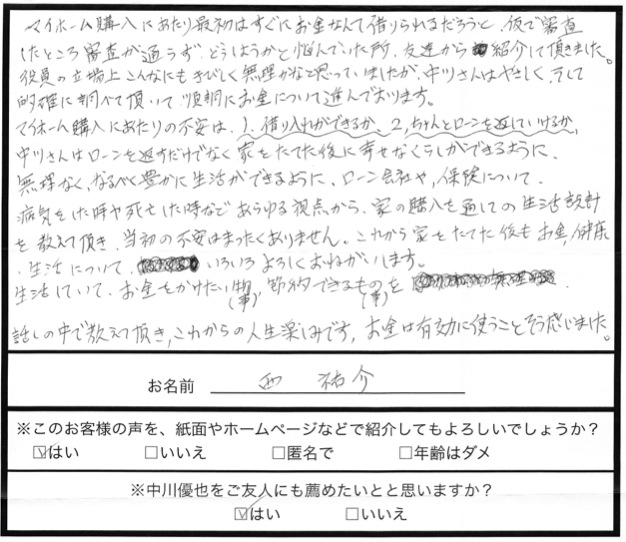 マイホーム購入にあたり最初はすぐにお金なんて借りられるだろうと、仮で審査
したところ審査が通うず、どうしようかと悩んでいた所、友達から紹介して頂きました。
役員の立場上こんなにもきびしく無理かなと思っていましたが、中川さんはやさしく、そして
的確に調べて頂いて順調にお金について進んでおります。
マイホーム購入にあたりの不安は、1.借り入れができるか、2,ちゃんとローンを返していけるか、
中川さんはローンを返すだけでなく家をたてた後に幸せなくらしができるように、
無理なく、なるべく豊かに生活ができるように、ローン会社や、保険について、
病気をした時や死亡した時などあらゆる視点から、家の購入を通しての生活設計
を教えて頂き、当初の不安はまったくありません。これから家をたてた後もお金、健康
、生活について、いろいろよろしくおねがいします。
生活していて、お金をかけたい物(事)、節約できるもの(事)を
話しの中で教えて頂き、これからの人生楽しみです、お金は有効に使うことそう感じました。
お名前 西 祐介
※このお客様の声を、紙面やホームページなどで紹介してもよろしいでしょうか?
☑はい □いいえ □匿名で □年齢はダメ
※中川優也をご友人にも薦めたいとと思いますか?
☑はい □いいえ